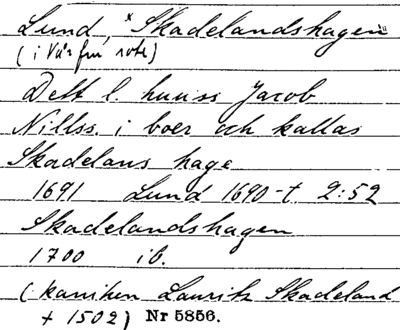 Lund, × Skadelandshagen
(i Vår fru rote)
Dett l. huuss Jacob
Nillss. i boer och kallas
Skadelans hage
1691 Lund 1690-t 2:52
Skadelandshagen
1700 ib.
(: kaniken Laurits Skadeland
+ 1502) Nr 5856.